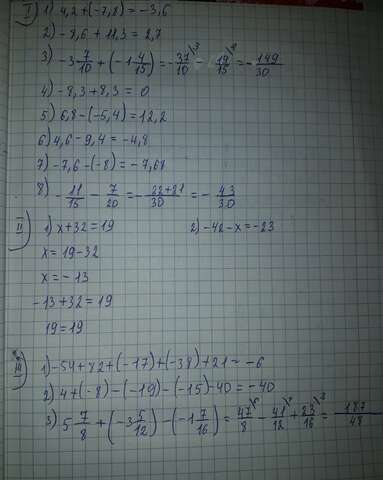 I) 1) 4,2 + (-7,8) = -3,6
2) -8,6 + 11,3 = 2,7
3) -3 7/10 + (-1 4/15) = -37/10 \3 - 19/15 \2 = -149/30
4) -8,3 + 8,3 = 0
5) 6,8 - (-5,4) = 12,2
6) 4,6 - 9,4 = -4,8
7) -7,6 - (-8) = -7,68
8) -11/15 - 7/20 = -22+21/30 = -43/30
II) 1) x + 32 = 19 2) -42 - x = -23
x = 19 - 32
x = -13
-13 + 32 = 19
19 = 19
III) 1) -54 + 82 + (-17) + (-38) + 21 = -6
2) 4 + (-8) - (-19) - (-15) - 40 = -40
3) 5 7/8 + (-3 5/12) - (-1 7/16) = 47/8 \6 - 41/12 \4 + 23/16 \3 = 187/48